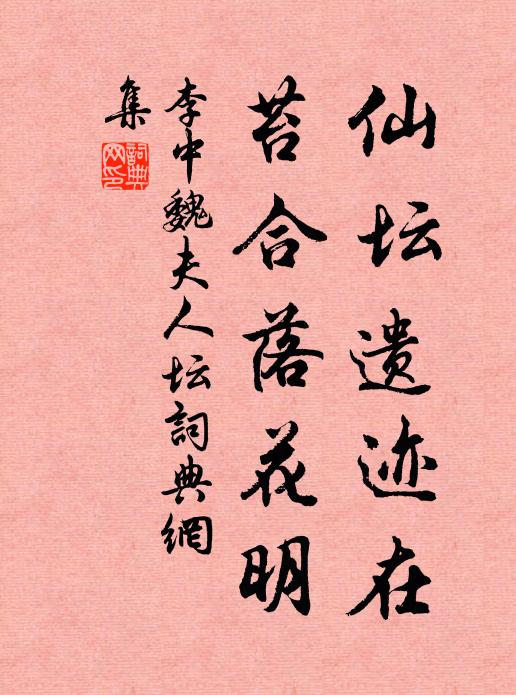 仙坛遗迹在
苔合落花明
李中魏夫人坛詞典網
集
詞典網印